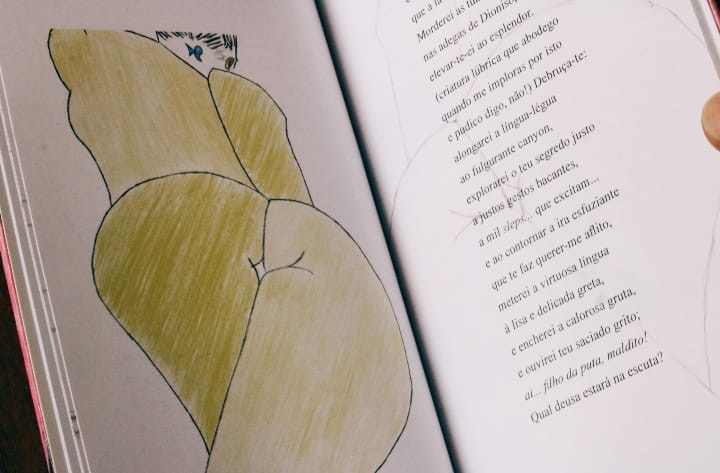 que a
Morderei as
nas adegas de Dioniso,
elevar-te-ei ao esplendor,
(criatura lúbrica que abodego
quando me imploras por isto
e pudico digo, não!) Debruça-te:
alongarei a língua-légua
ao fulgurante canyon,
explorarei o teu segredo justo
a justos gestos bacantes,
a mil sleps... que excitam...
e ao contornar a ira esfuziante
que te faz querer-me aflito,
meterei a virtuosa língua
à lisa e delicada greta,
e encherei a calorosa gruta,
e ouvirei teu saciado grito;
ai... filho da puta, maldito!
Qual deusa estará na escuta?